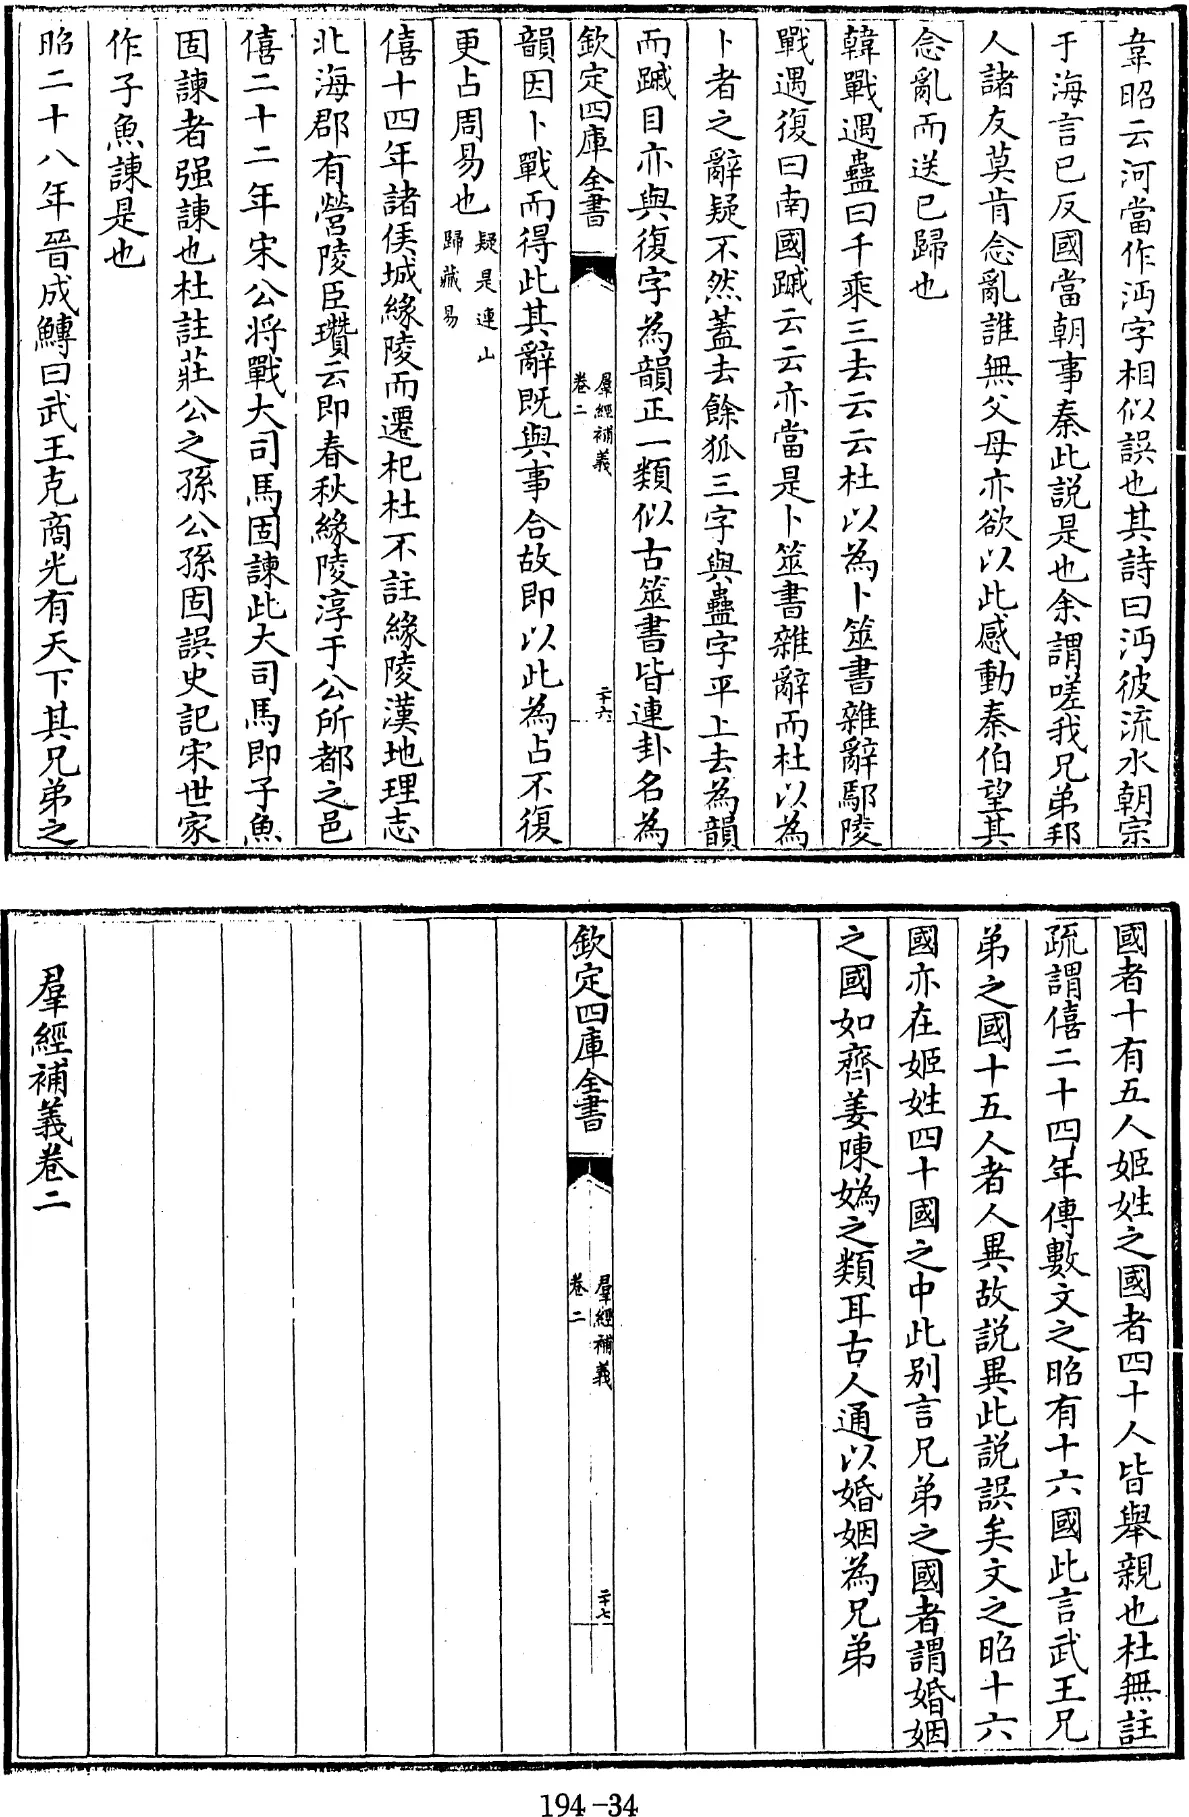 韋昭云河當作沔字相似誤也其詩曰沔彼流水朝宗
于海言已反國當朝事秦此説是也余謂嗟我兄弟邦
人諸友莫肯念亂誰無父母亦欲以此感動秦伯望其
念亂而送已歸也
韓戰遇蠱曰千乘三去云云杜以為卜筮書雜辭鄢陵
戰遇復曰南國䠞云云亦當是卜筮書雜辭而杜以為
卜者之辭疑不然蓋去餘狐三字與蠱字平上去為韻
而䠞目亦與復字為韻正一類似古筮書皆連卦名為
欽定四庫全書
羣經補義
卷二
二十六
韻因卜戰而得此其辭既與事合故即以此為占不復
更占周易也疑是連山
歸藏易
僖十四年諸侯城緣陵而遷杞杜不註緣陵漢地理志
北海郡有營陵臣瓚云即春秋緣陵淳于公所都之邑
僖二十二年宋公將戰大司馬固諫此大司馬即子魚
固諫者强諫也杜註莊公之孫公孫固誤史記宋世家
作子魚諫是也
昭二十八年晉成鱄曰武王克商光有天下其兄弟之
國者十有五人姬姓之國者四十人皆舉親也杜無註
疏謂僖二十四年傳數文之昭有十六國此言武王兄
弟之國十五人者人異故説異此説誤矣文之昭十六
國亦在姬姓四十國之中此别言兄弟之國者謂婚姻
之國如齊姜陳媯之類耳古人通以婚姻為兄弟
欽定四庫全書
羣經補義
卷二
二十七
羣經補義卷二
194-34